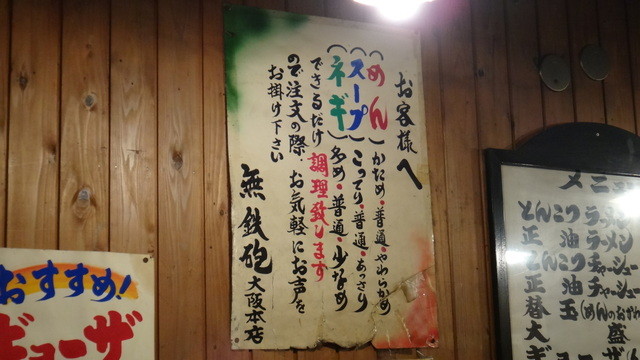 お客様へ
(めん)かため・普通・やわらかめ
(スープ)こってり・普通・あっさり
(ネギ)多め・普通・少なめ
できるだけ調理致します
ので注文の際、お気軽にお声を
お掛け下さい
無鉄砲 大阪本店
おすすめ!
ギョーザ
メニュ
とんこつラーメン
正油ラーメン
とんこつチャーシュー
正油チャーシュー
替玉(めんのおかわ
大盛